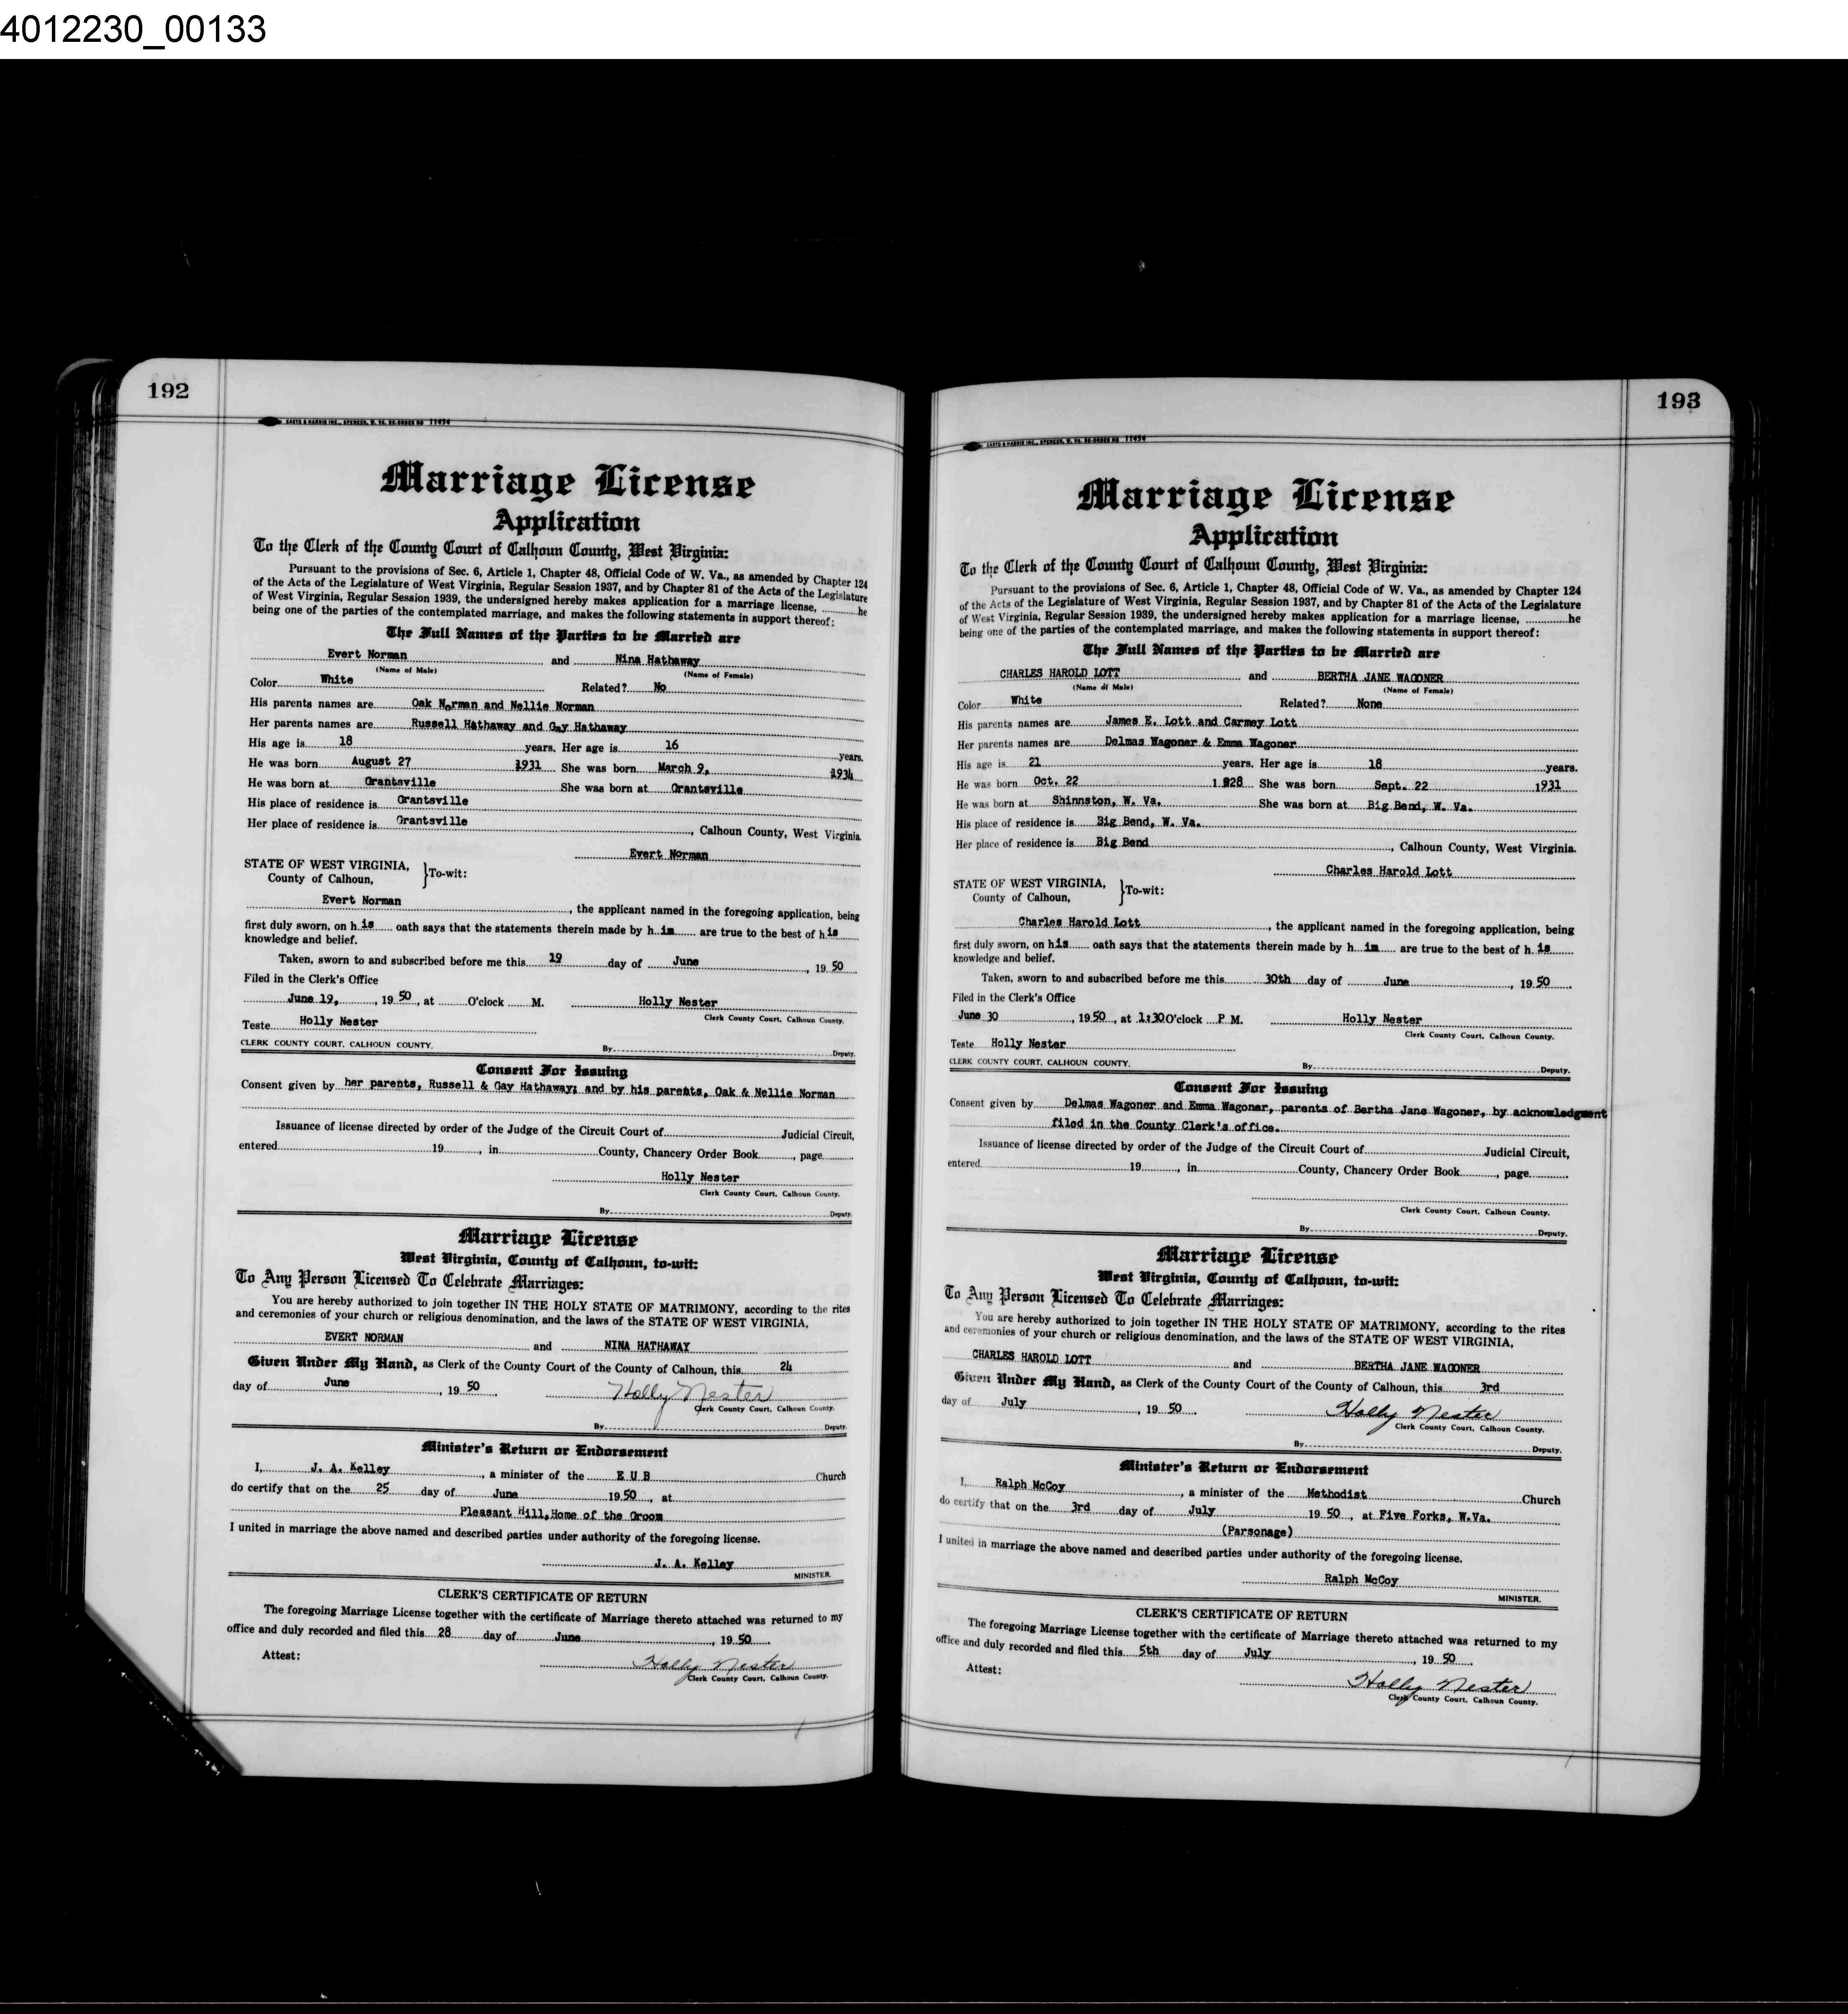 4012230_00133
192
CASTO & HARRIS INC., SPENCER, W. VA. RE-ORDER NO 11494
Marriage License
Application
To the Clerk of the County Court of Calhoun County, West Virginia:
Pursuant to the provisions of Sec. 6, Article 1, Chapter 48, Official Code of W. Va., as amended by Chapter 124
of the Acts of the Legislature of West Virginia, Regular Session 1937, and by Chapter 81 of the Acts of the Legislature
of West Virginia, Regular Session 1939, the undersigned hereby makes application for a marriage license, ............he
being one of the parties of the contemplated marriage, and makes the following statements in support thereof:
The Full Names of the Parties to be Married are
Evert Norman and Nina Hathaway
(Name of Male) (Name of Female)
Color White Related? No
His parents names are Oak Norman and Nellie Norman
Her parents names are Russell Hathaway and Gay Hathaway
His age is 18 years. Her age is 16 years.
He was born August 27 1931 She was born March 9, 1934
He was born at Grantsville She was born at Grantsville
His place of residence is Grantsville
Her place of residence is Grantsville, Calhoun County, West Virginia
Evert Norman
STATE OF WEST VIRGINIA,
County of Calhoun, }To-wit:
Evert Norman, the applicant named in the foregoing application, being
first duly sworn, on h is oath says that the statements therein made by h im are true to the best of h is
knowledge and belief.
Taken, sworn to and subscribed before me this 19 day of June, 19 50
Filed in the Clerk's Office
June 19, 19 50, at O'clock M. Holly Nester
Clerk County Court, Calhoun County.
Teste Holly Nester
CLERK COUNTY COURT, CALHOUN COUNTY. By Deputy.
Consent For Issuing
Consent given by her parents, Russell & Gay Hathaway; and by his parents, Oak & Nellie Norman
Issuance of license directed by order of the Judge of the Circuit Court of Judicial Circuit,
entered 19, in County, Chancery Order Book, page
Holly Nester
Clerk County Court, Calhoun County.
By Deputy.
Marriage License
West Virginia, County of Calhoun, to-wit:
To Any Person Licensed To Celebrate Marriages:
You are hereby authorized to join together IN THE HOLY STATE OF MATRIMONY, according to the rites
and ceremonies of your church or religious denomination, and the laws of the STATE OF WEST VIRGINIA,
EVERT NORMAN and NINA HATHAWAY
Given Under My Hand, as Clerk of the County Court of the County of Calhoun, this 24
day of June, 19 50 Holly Nester
Clerk County Court, Calhoun County.
By Deputy.
Minister's Return or Endorsement
I, J. A. Kelley, a minister of the E U B Church
do certify that on the 25 day of June 19 50, at
Pleasant Hill, Home of the Groom
I united in marriage the above named and described parties under authority of the foregoing license.
J. A. Kelley
MINISTER.
CLERK'S CERTIFICATE OF RETURN
The foregoing Marriage License together with the certificate of Marriage thereto attached was returned to my
office and duly recorded and filed this 28 day of June, 19 50
Attest: Holly Nester
Clerk County Court, Calhoun County.
193
CASTO & HARRIS INC., SPENCER, W. VA. RE-ORDER NO 11494
Marriage License
Application
To the Clerk of the County Court of Calhoun County, West Virginia:
Pursuant to the provisions of Sec. 6, Article 1, Chapter 48, Official Code of W. Va., as amended by Chapter 124
of the Acts of the Legislature of West Virginia, Regular Session 1937, and by Chapter 81 of the Acts of the Legislature
of West Virginia, Regular Session 1939, the undersigned hereby makes application for a marriage license, ............he
being one of the parties of the contemplated marriage, and makes the following statements in support thereof:
The Full Names of the Parties to be Married are
CHARLES HAROLD LOTT and BERTHA JANE WAGONER
(Name of Male) (Name of Female)
Color White Related? None
His parents names are James E. Lott and Carmey Lott
Her parents names are Delmas Wagoner & Emma Wagoner
His age is 21 years. Her age is 18 years.
He was born Oct. 22 1 928 She was born Sept. 22 1931
He was born at Shinnston, W. Va. She was born at Big Bend, W. Va.
His place of residence is Big Bend, W. Va.
Her place of residence is Big Bend, Calhoun County, West Virginia.
Charles Harold Lott
STATE OF WEST VIRGINIA,
County of Calhoun, }To-wit:
Charles Harold Lott, the applicant named in the foregoing application, being
first duly sworn, on his oath says that the statements therein made by h im are true to the best of h is
knowledge and belief.
Taken, sworn to and subscribed before me this 30th day of June, 19 50
Filed in the Clerk's Office
June 30, 19 50, at 1:30 O'clock P M. Holly Nester
Clerk County Court, Calhoun County.
Teste Holly Nester
CLERK COUNTY COURT, CALHOUN COUNTY. By Deputy.
Consent For Issuing
Consent given by Delmas Wagoner and Emma Wagoner, parents of Bertha Jane Wagoner, by acknowledgment
filed in the County Clerk's office.
Issuance of license directed by order of the Judge of the Circuit Court of Judicial Circuit,
entered 19, in County, Chancery Order Book, page
Clerk County Court, Calhoun County.
By Deputy.
Marriage License
West Virginia, County of Calhoun, to-wit:
To Any Person Licensed To Celebrate Marriages:
You are hereby authorized to join together IN THE HOLY STATE OF MATRIMONY, according to the rites
and ceremonies of your church or religious denomination, and the laws of the STATE OF WEST VIRGINIA,
CHARLES HAROLD LOTT and BERTHA JANE WAGONER
Given Under My Hand, as Clerk of the County Court of the County of Calhoun, this 3rd
day of July, 19 50 Holly Nester
Clerk County Court, Calhoun County.
By Deputy.
Minister's Return or Endorsement
I, Ralph McCoy, a minister of the Methodist Church
do certify that on the 3rd day of July 19 50, at Five Forks, W.Va.
(Parsonage)
I united in marriage the above named and described parties under authority of the foregoing license.
Ralph McCoy
MINISTER.
CLERK'S CERTIFICATE OF RETURN
The foregoing Marriage License together with the certificate of Marriage thereto attached was returned to my
office and duly recorded and filed this 5th day of July, 19 50
Attest: Holly Nester
Clerk County Court, Calhoun County.